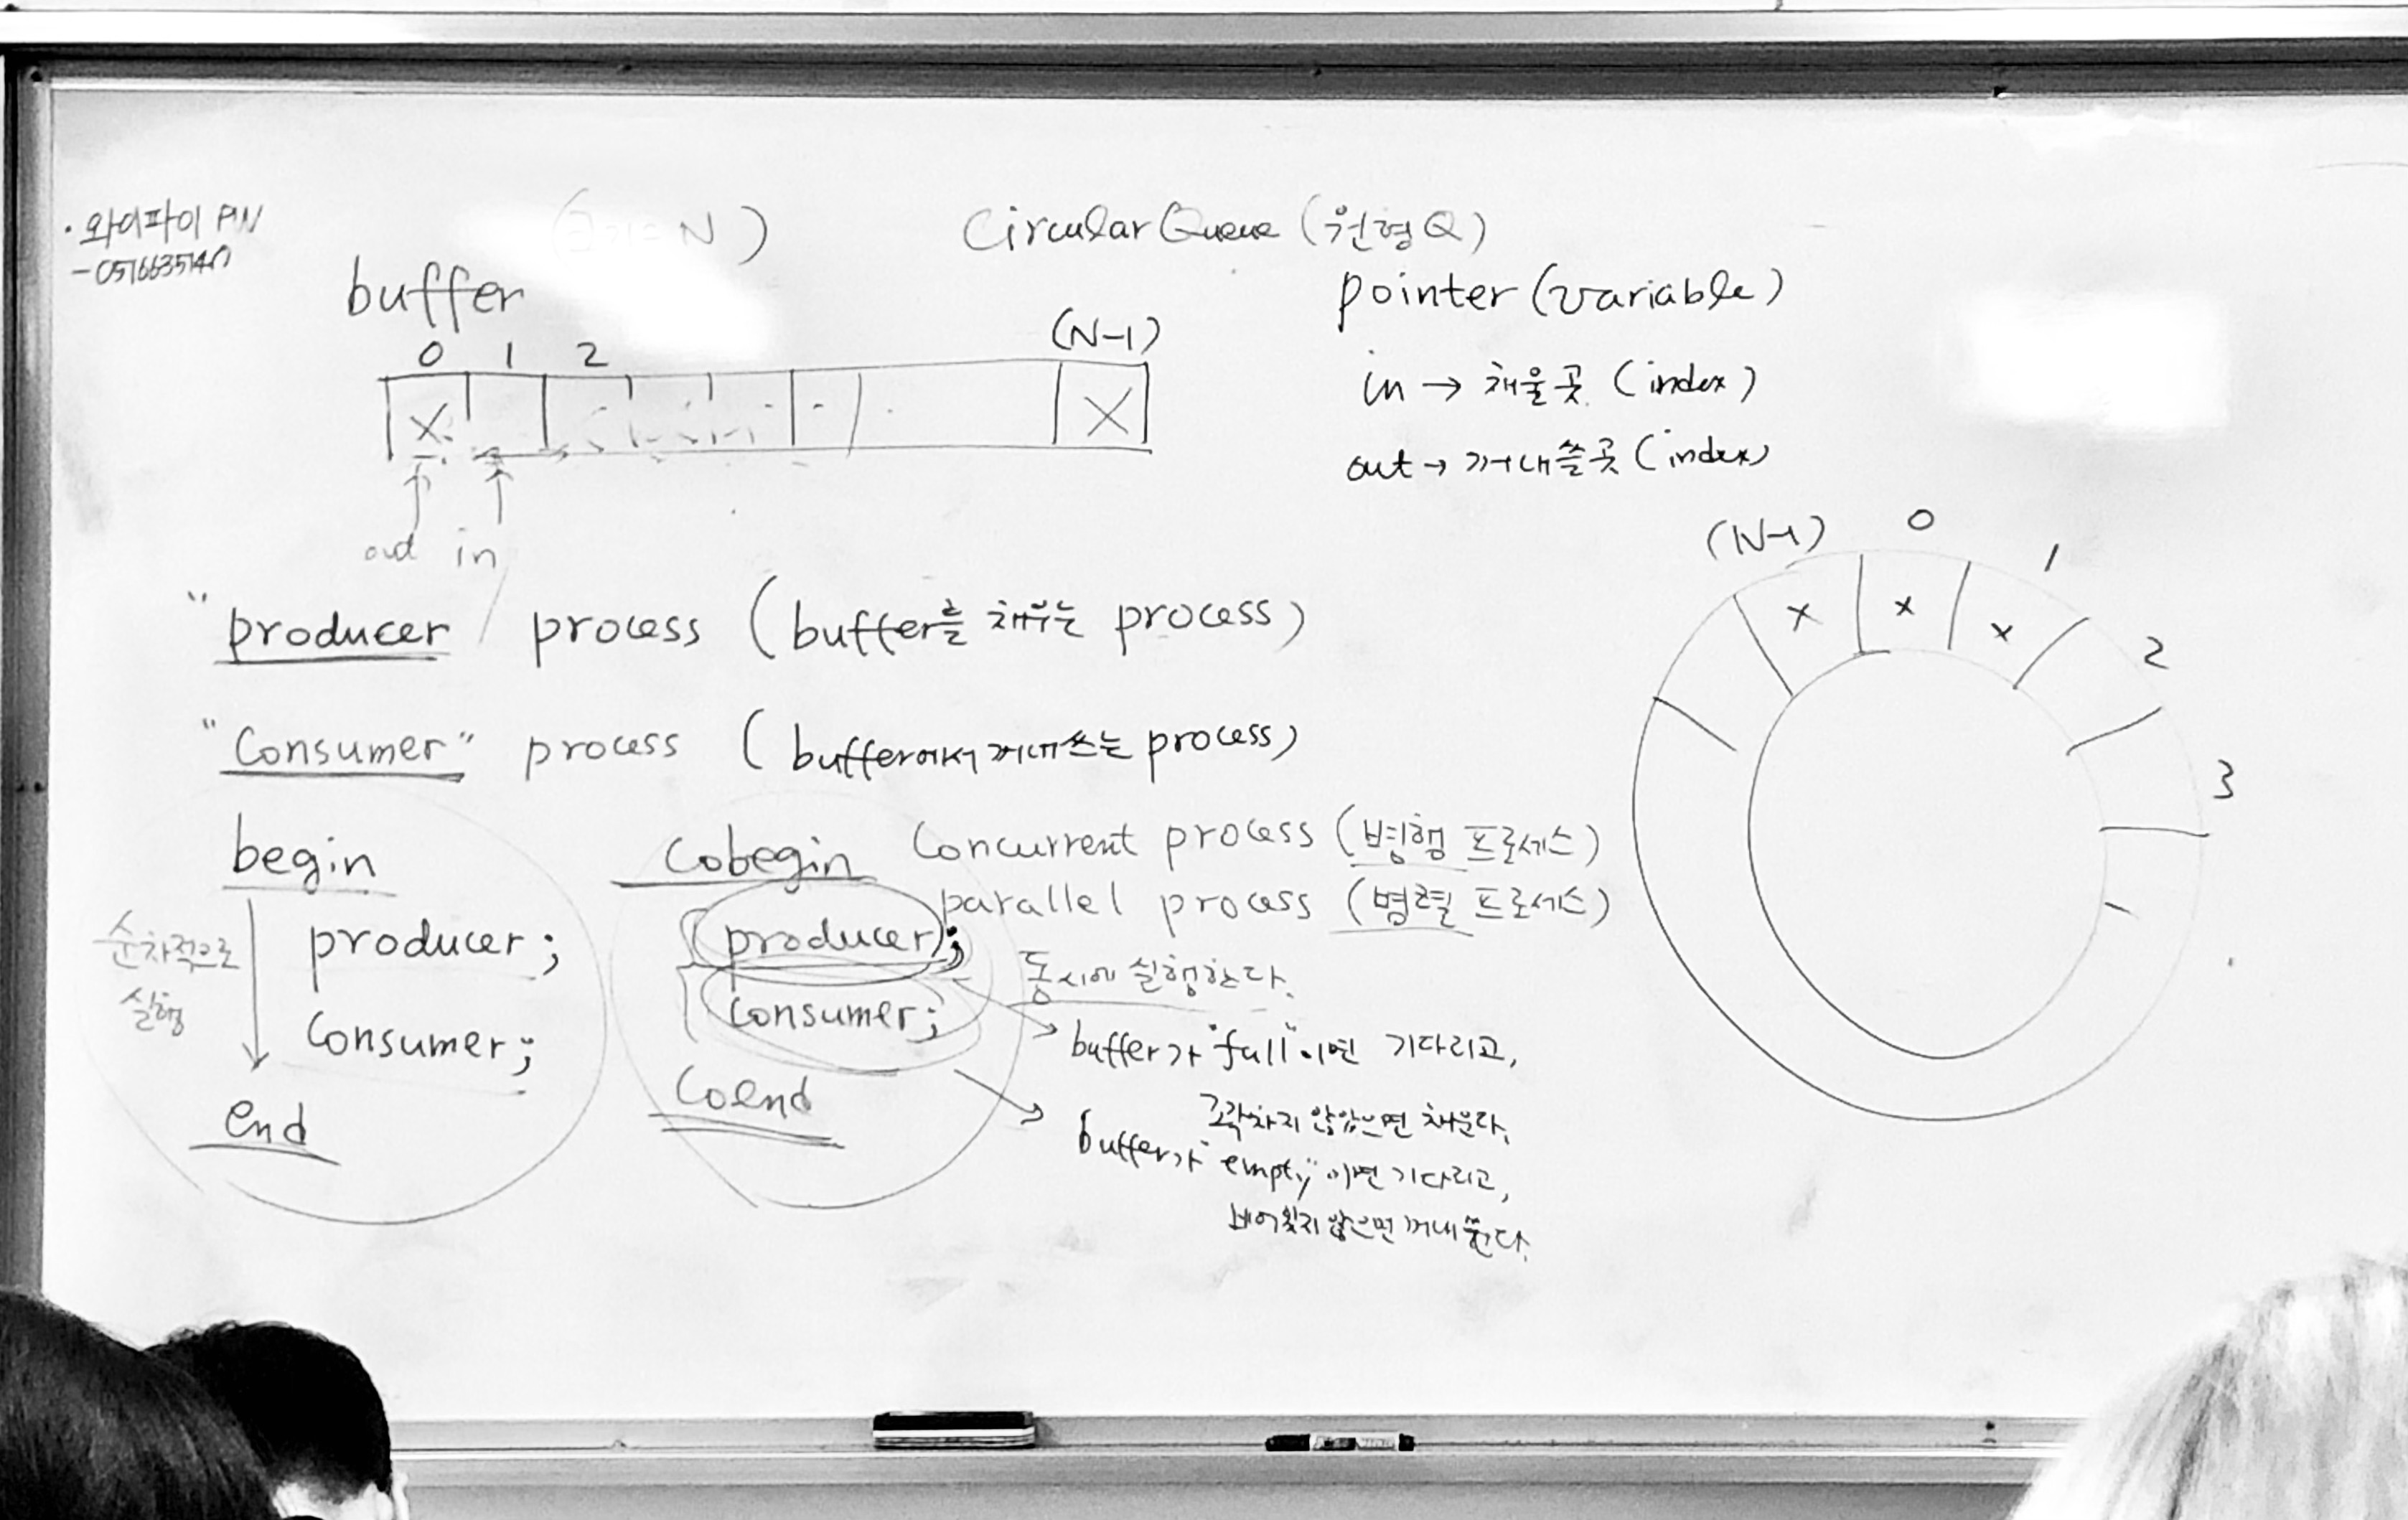 · 와이파이 PIN
N )
Circular Queue (원형Q)
buffer
pointer (variable)
0 1 2 (N-1)
in → 채울 곳 (index)
X X
out → 꺼내쓸곳 (index)
out in
(N-1) 0 1 2 3
x x x
"producer process (buffer를 채우는 process)
"Consumer" process (buffer에서 꺼내쓰는 process)
begin
순차적으로
실행
producer;
Consumer;
end
Cobegin
producer;
Consumer;
Coend
Concurrent process (병행 프로세스)
parallel process (병렬 프로세스)
동시에 실행한다.
buffer가 "full"이면 기다리고,
꽉차지 않았으면 채운다,
buffer가 "empty"이면 기다리고,
비어있지 않으면 꺼내쓴다,